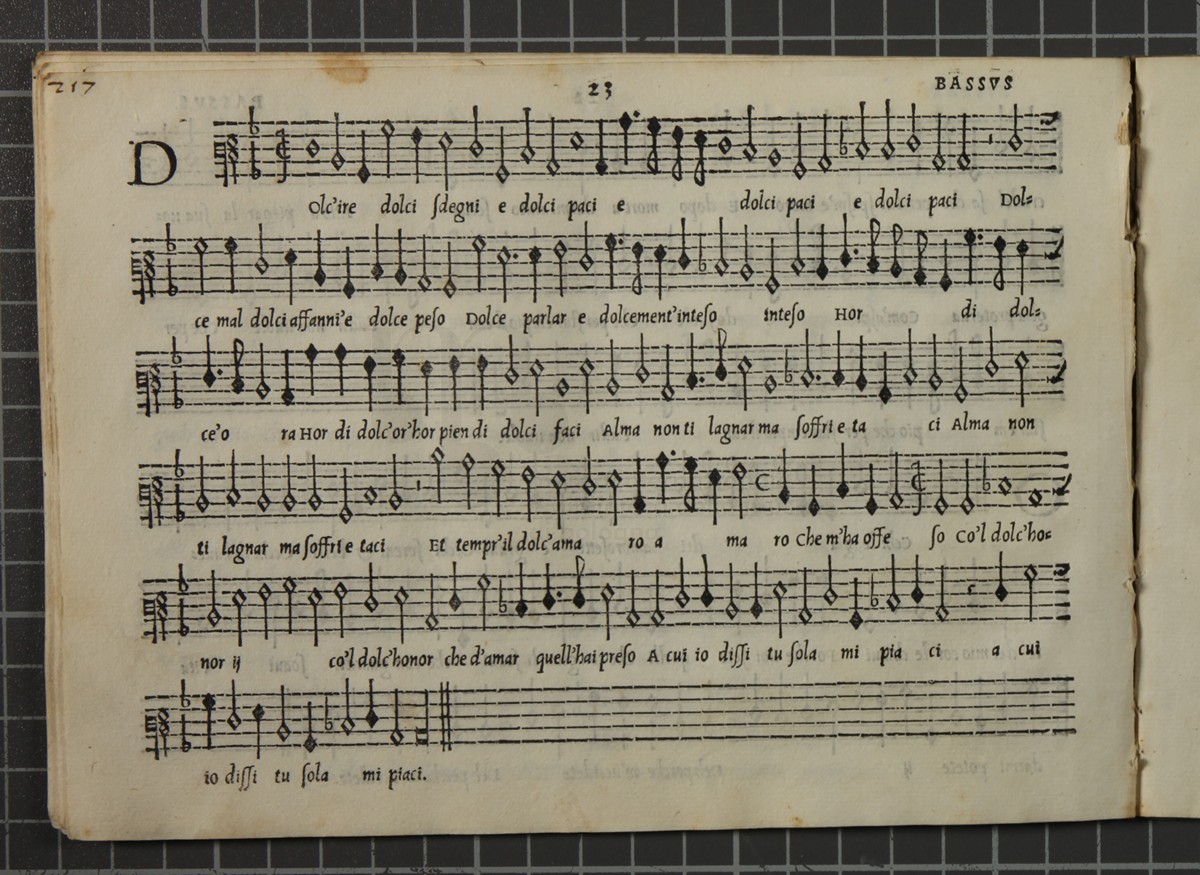 217 23 BASSVS
D
Olc'ire dolci ſdegni e dolci paci e dolci paci e dolci paci Dol=
ce mal dolci affanni'e dolce peſo Dolce parlar e dolcement'inteſo inteſo Hor di dol=
ce'o ra Hor di dolc'or'hor pien di dolci faci Alma non ti lagnar ma ſoffri e ta ci Alma non
ti lagnar ma ſoffri e taci Et tempr'il dolc'ama ro a ma ro Che m'ha offe ſo Co'l dolc'ho=
nor ij co'l dolc'honor che d'amar quell'hai preſo A cui io diſſi tu ſola mi pia ci a cui
io diſſi tu ſola mi piaci.